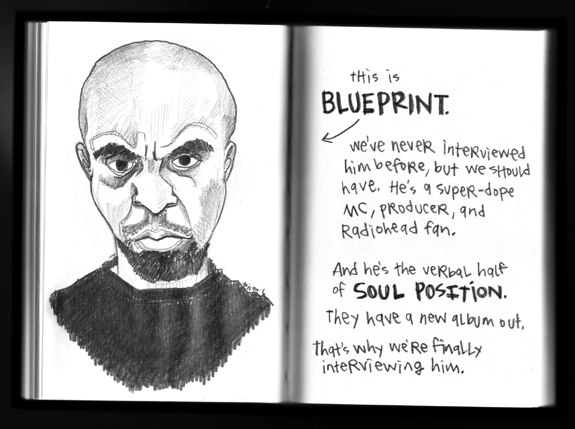 this is
BLUEPRINT.
we've never interviewed
him before, but we should
have. He's a super-dope
MC, producer, and
Radiohead fan.
And he's the verbal half
of SOUL POSITION.
They have a new album out.
That's why we're finally
interviewing him.